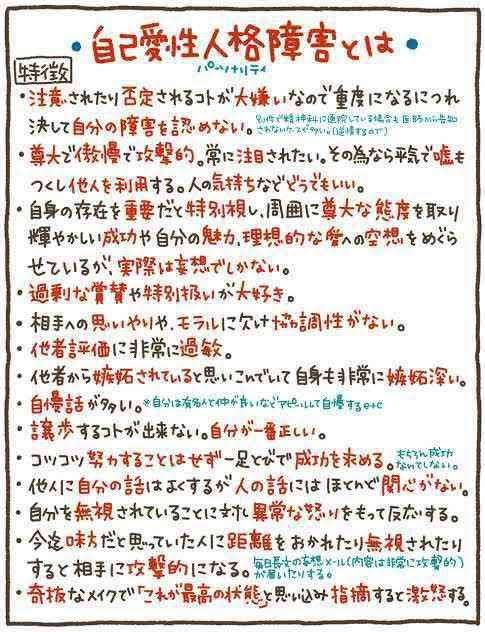 ・自己愛性人格障害とは・
パーソナリティ
特徴
・注意されたり否定されるコトが大嫌いなので重度になるにつれ
決して自分の障害を認めない。別件で精神科に通院している場合も医師から告知
されないケースが多い。(逆慢するので)
・尊大で傲慢で攻撃的。常に注目されたい。その為なら平気で嘘も
つくし他人を利用する。人の気持ちなどどうでもいい。
・自身の存在を重要だと特別視し、周囲に尊大な態度を取り
輝やかしい成功や自分の魅力、理想的な愛への空想をめぐら
せているが、実際は妄想でしかない。
・過剰な賞賛や特別扱いが大好き。
・相手への思いやりや、モラルに欠け協調性がない。
・他者評価に非常に過敏。
・他者から嫉妬されていると思いこんでいて自身も非常に嫉妬深い。
・自慢話が多い。※自分は有名人と仲が良いなどアピールして自慢するetc
・譲歩するコトが出来ない。自分が一番正しい。
・コツコツ努力することはせず一足とびで成功を求める。もちろん成功
なんてしない。
・他人に自分の話はよくするが人の話にはほとんど関心がない。
・自分を無視されていることに対し異常な怒りをもって反応する。
・今迄味方だと思っていた人に距離をおかれたり無視されたり
すると相手に攻撃的になる。毎日長文の妄想メール(内容は非常に攻撃的)
が届いたりする。
・奇抜なメイクで「これが最高の状態」と思い込み指摘すると激怒する。